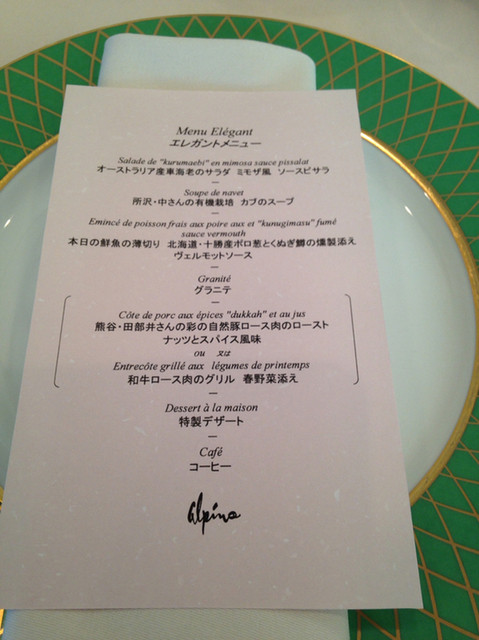 Menu Elégant
エレガントメニュー
Salade de "kurumaebi" en mimosa sauce pissalat
オーストラリア産車海老のサラダ ミモザ風 ソースピサラ
Soupe de navet
所沢・中さんの有機栽培 カブのスープ
Emincé de poisson frais aux poire aux et "kunugimasu" fumé
sauce vermouth
本日の鮮魚の薄切り 北海道・十勝産ポロ葱とくぬぎ鱒の燻製添え
ヴェルモットソース
Granité
グラニテ
Côte de porc aux épices "dukkah" et au jus
熊谷・田部井さんの彩の自然豚ロース肉のロースト
ナッツとスパイス風味
ou 又は
Entrecôte grillé aux légumes de printemps
和牛ロース肉のグリル 春野菜添え
Dessert à la maison
特製デザート
Café
コーヒー
alpino